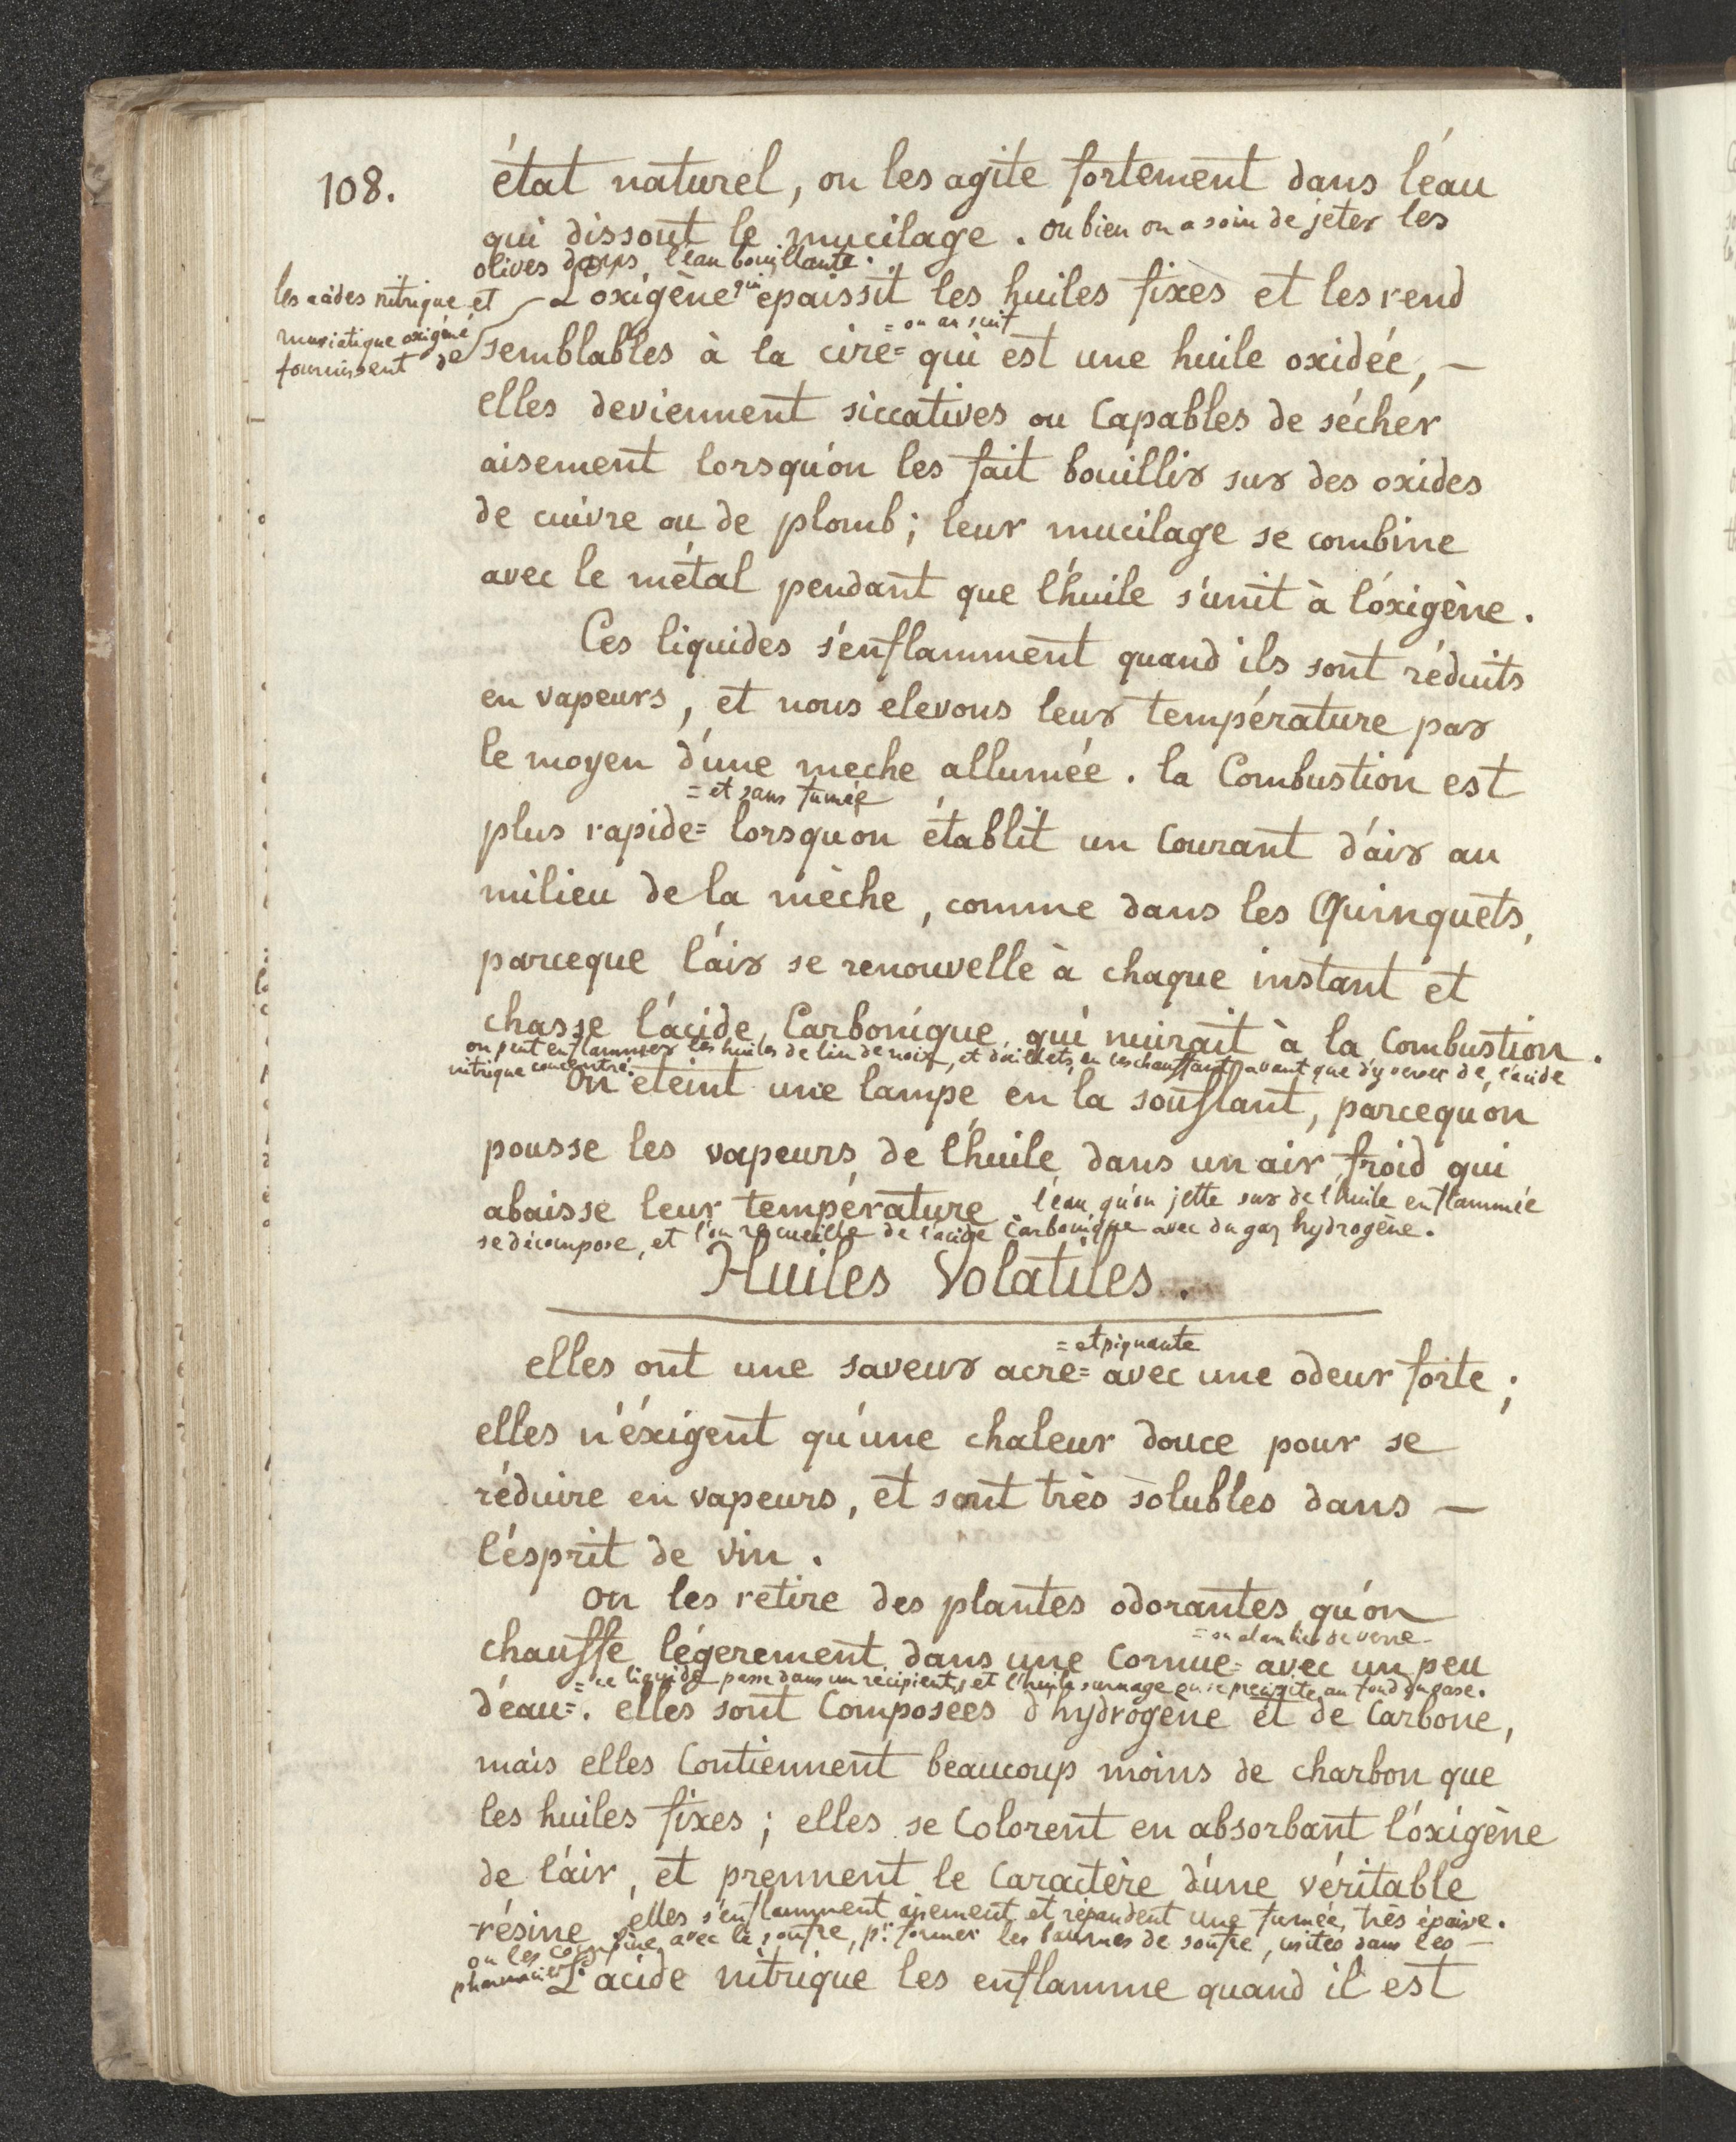 108.
état naturel, on les agite fortement dans l'éau
qui dissout le mucilage. ou bien on a soin de jeter les
olives dans l'éau bouillante.
les acides nitrique et
muriatique oxigéné
fournissent de
L'oxigène qui épaissit les huiles fixes et les rend
= ou an suit
semblables à la cire= qui est une huile oxidée, —
elles deviennent siccatives ou Capables de sécher
aisement lorsqu'on les fait bouillir sur des oxides
de cuivre ou de plomb; leur mucilage se combine
avec le métal pendant que l'huile s'unit à l'óxigène.
Ces liquides s'enflamment quand ils sont réduits
en vapeurs, et nous elevons leur température par
le moyen d'úne meche allumée. la Combustion est
= et sans fumée
plus rapide= lorsquon établit un Courant d'áir au
milieu de la mèche, comme dans les Quinquets,
parceque l'áir se renouvelle à chaque instant et
chasse l'ácide Carbonique qui nuirait à la Combustion.
on peut enflammer les huiles de lin de noix, et d'œillets, en les chauffant avant que d'y verser de l'acide
nitrique concentré.
On éteint une lampe en la souflant, parcequ'on
pousse les vapeurs de l'huile dans un air froid qui
abaisse leur température. l'éau qu'on jette sur de l'huile enflammée
se décompose, et l'on recueille de l'acide Carbonique avec du gaz hydrogène.
Huiles Volatiles.
= et piquante
elles ont une saveur acre= avec une odeur forte;
elles n'éxigent qu'une chaleur douce pour se
réduire en vapeurs, et sont très solubles dans —
l'ésprit de vin.
On les retire des plantes odorantes qu'on
= ou alambic de verre
chauffe légerement dans une Cornue= avec un peu
= ce liquide passe dans un récipient, et l'huile surnage ou se précipite au fond du vase.
d'éau=. elles sont Composées d'hydrogène et de Carbone,
mais elles Contiennent beaucoup moins de charbon que
les huiles fixes; elles se Colorent en absorbant l'óxigène
de l'áir, et prennent le Caractère d'úne véritable
résine. elles s'enflamment aisement et répandent une fumée très épaisse.
on les combine avec le soufre, pr. former les baumes de soufre, usités dans les —
pharmacies.
L'acide nitrique les enflamme quand il est